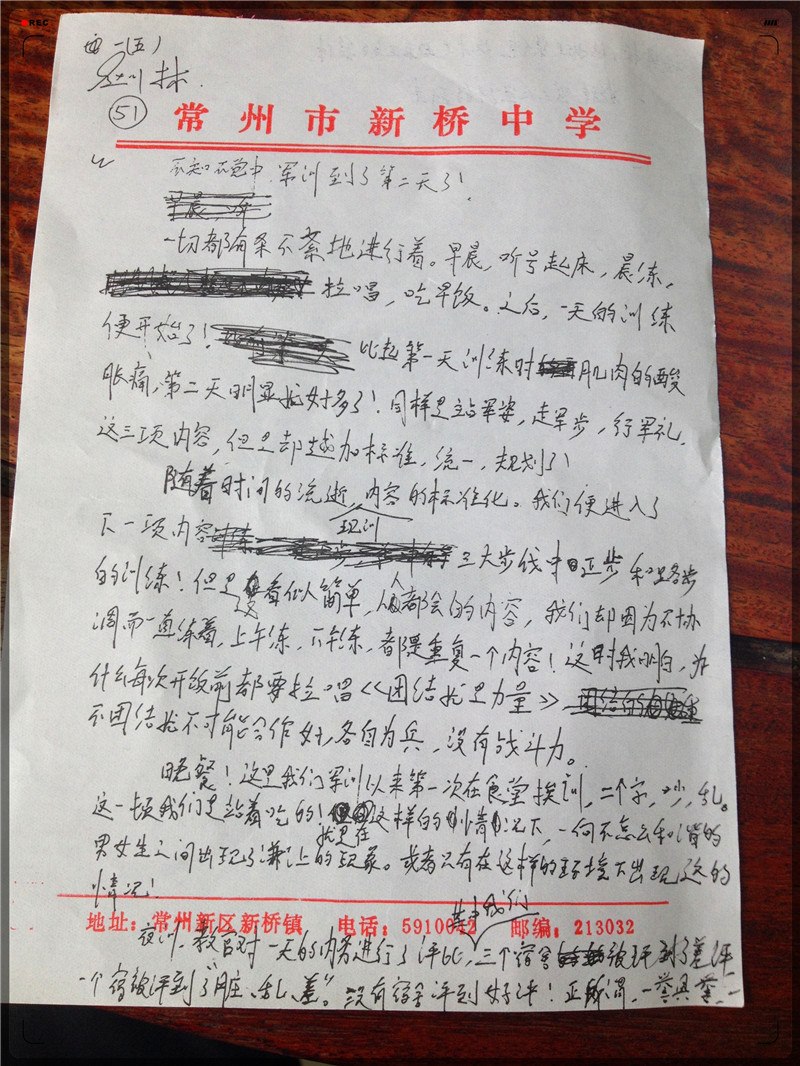 REC
曲一(五)
林
51
常州市新桥中学
不知不觉中,军训到了第二天了!
早晨
一切都有条不紊地进行着。早晨,听号起床,晨练,
拉唱,吃早饭。之后,一天的训练
便开始了! 比起第一天训练时肌肉的酸
胀痛,第二天明显地好多了!同样是站军姿,走军步,行军礼,
这三项内容,但是却越加标准,统一,规划了!
随着时间的流逝,内容的标准化。我们便进入了
下一项内容 三大步伐中正步和
的训练!但是看似简单,人人都会的内容,我们却因为不协
调而一直练着,上午练,下午练,都是重复一个内容!这时我明白,为
什么每次开饭前都要拉唱《团结就是力量》
不团结就不可能合作好,各自为兵,没有战斗力。
晚餐!这是我们军训以来第一次在食堂挨训,二个字,吵,乱。
这一顿我们是站着吃的!就是在这样的情况下,一向不怎么和谐的
男女生之间出现了谦让的现象。或者只有在这样的环境下出现这的
情况!
地址:常州新区新桥镇 电话:5910042 邮编:213032
夜训,教官对一天的内务进行了评比,其中我们三个宿舍被评到了差评
一个宿被评到了“脏、乱、差”。没有宿舍评到好评!正所谓,一誉具誉,一